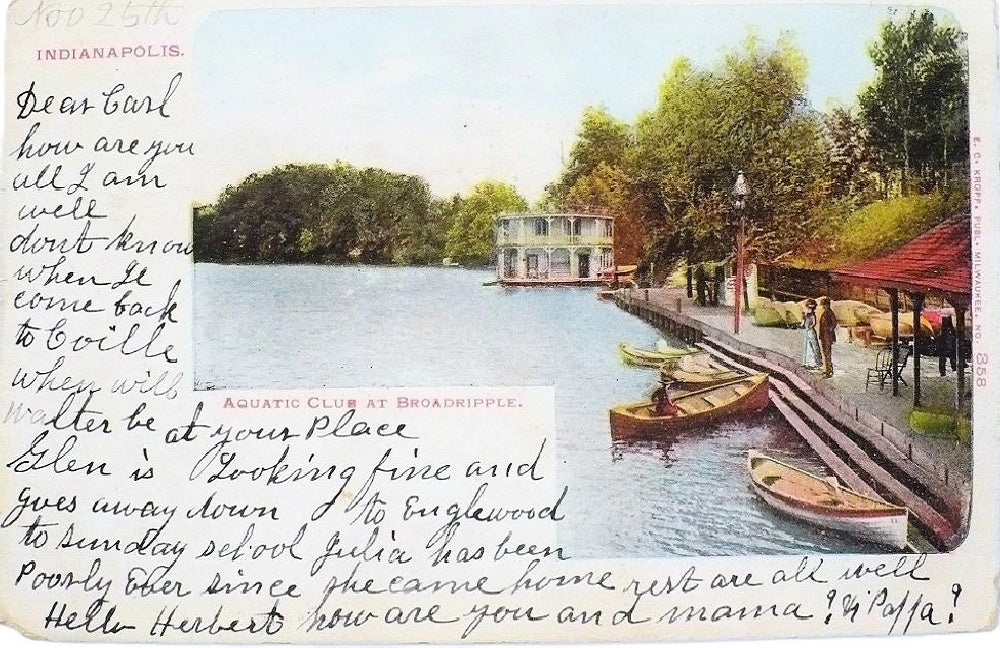 Nov 25th
INDIANAPOLIS.
Dear Carl
how are you
all I am
well
dont know
when Il
come back
to Cville
when will
walter be at your Place
AQUATIC CLUB AT BROADRIPPLE.
Glen is Looking fine and
goes away down to Englewood
to Sunday school Julia has been
Poorly Ever since she came home rest are all well
Hello Herbert how are you and mama? & Pappa?
E. C. KROPP, PUBL. MILWAUKEE. NO. 358